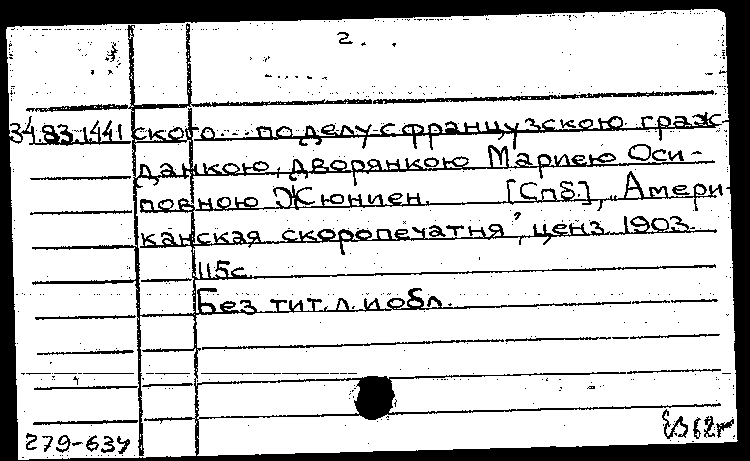 2.
34.83.1441 ского... по делу с французскою граж-
данкою, дворянкою Мариею Оси-
повною Жюниен. [Спб.], „Амери-
канская скоропечатня", ценз. 1903.
115с.
Без тит. л. и обл.
279-63у